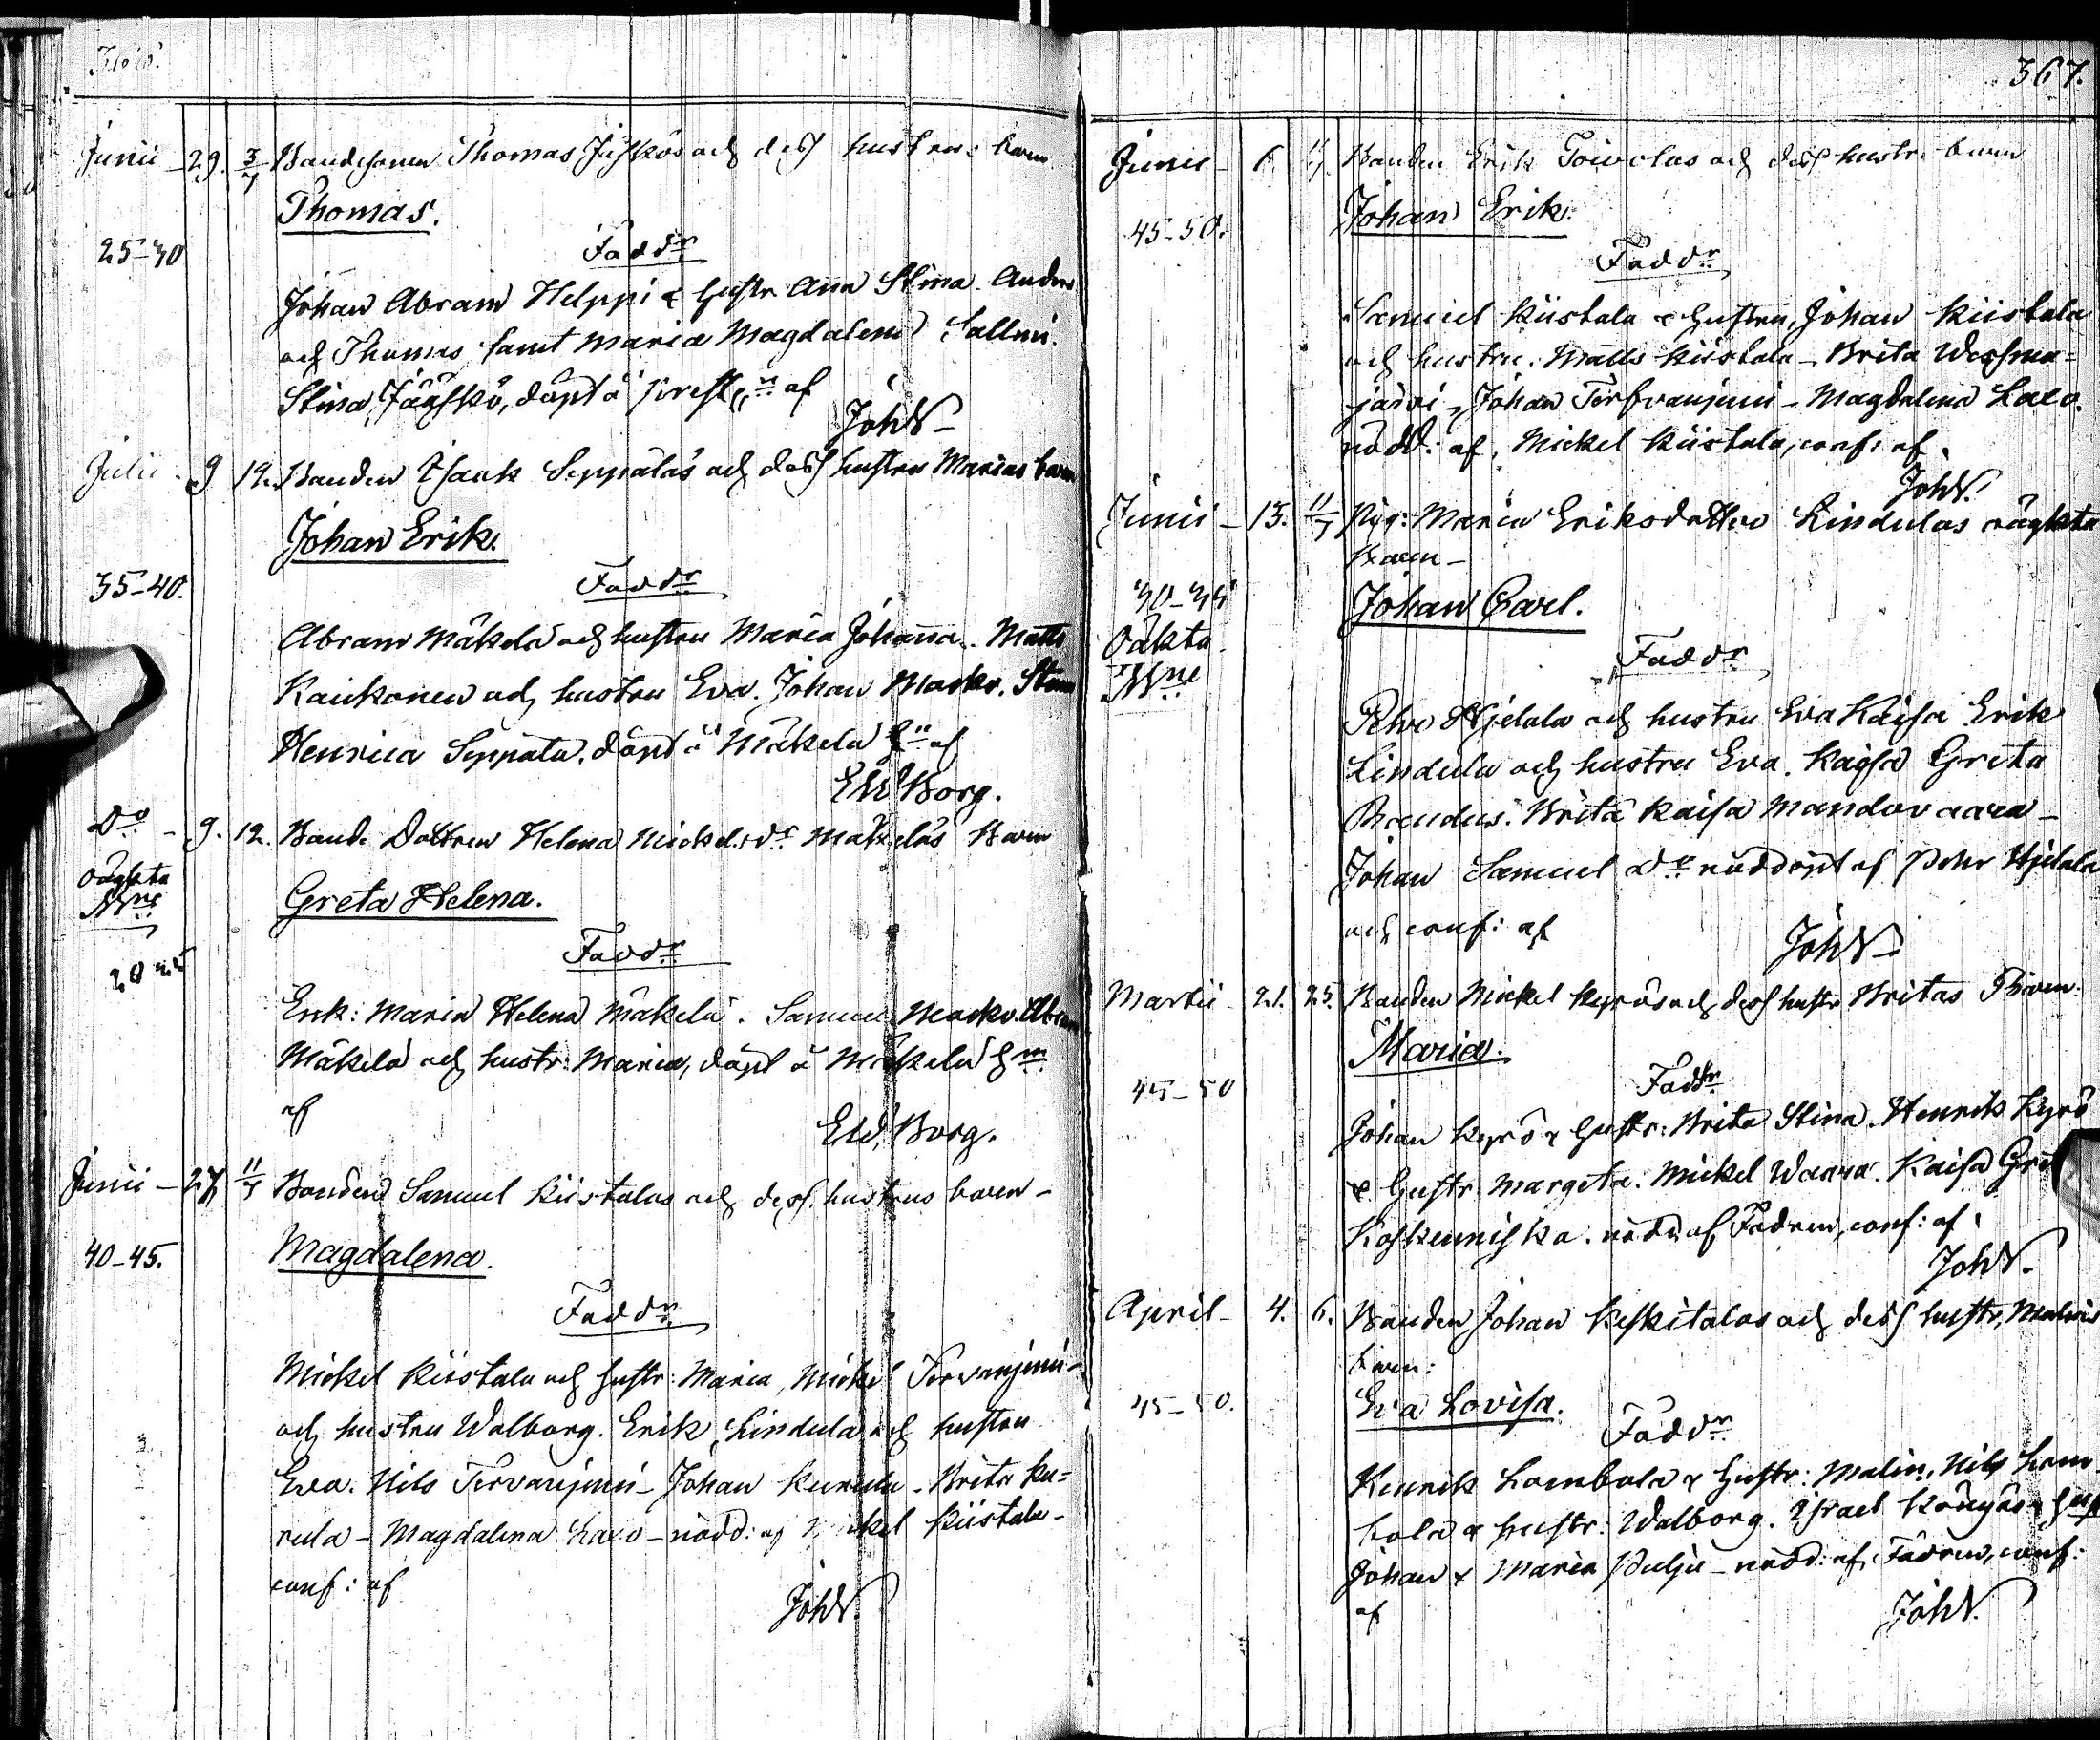 Junii 29. 3/7 Bondesonen Thomas Jeskös och dess hustrus barn
Thomas.
25-30
Fadd:r
Johan Abram Helppi & hustr Anna Stina. Anders
och Thomas samt Maria Magdalena
Stina Jääskö, döpt å af
Joh W
Julii 9 12. Bonden Isaak Seppäläs och dess hustru Marias barn
Johan Erik.
35-40.
Fadd:r
Abram Mäkelä och hustru Maria Johanna. Matts
Kaukonen och hustru Eva. Johan Marko. Stina
Henrica Seppälä. döpt å Mäkelä af
Ekl Borg.
D:o 9. 12. Bonde Dottren Helena Mickels d:r Mäkeläs Barn
oägta
Greta Helena.
Fadd:r
Erik: Maria Helena Mäkelä. Samuel Marko. Abram
Mäkelä och hustr: Maria, döpt å Mäkelä
af
Borg.
Junii 27. 11/7 Bonden Samuel Kiistalas och dess hustrus barn
40-45.
Magdalena.
Fadd:r
Mickel Kiistala och hustr: Maria, Mickel Torvanjemi
och hustru Walborg. Erik Lindula och hustru
Eva. Nils Torvanjemi Johan Kurula. Brita Ku=
rula - Magdalena Laxo - nödd: af Mickel Kiistala
conf: af
Joh W.
367.
Junii 6. Bonden Erik Toivolas och dess hustru barn
Johan Erik.
45-50.
Fadd:r
Samuel Kiistala & hustru, Johan Kiistala
och hustru. Matts Kiistala - Brita Wesma=
järvi, Johan Torfvanjemi - Magdalena Laxo.
nödd: af, Mickel Kiistala, conf: af
Joh W.
Junii 13. 11/7 Pig: Maria Eriksdotter Lindulas oägta
Barn
Johan Carl.
oäkta
Fadd:r
Pehr Hjelala och hustru Eva Kaisa Erik
Lindula och hustru Eva. Kaisa Greta
Brita Kaisa Mandovaara
Johan Samuel nöddöpt af Pehr Hjelala
och conf: af
Joh W
Martii 21. 25. Bonden Mickel Kyrös och dess hustr Britas Barn
Maria.
45-50
Fadd:r
Johan Kyrö & hustr: Brita Stina. Henrik Kyrö
& hustr Margeta. Mickel Waara. Kaisa Greta
Koskenniska. nödd. af Fadren, conf: af
Joh W.
April 4. 6. Bonden Johan Keskitalos och dess hustr. Malins
barn:
45-50.
Eva Lovisa.
Fadd:r
Henrik Lombola & hustr: Malin, Nils Lom
bola & hustr: Walborg. Israel Köngäs &
Johan & Maria Pulju - nödd: af Fadren, conf:
af
Joh W.